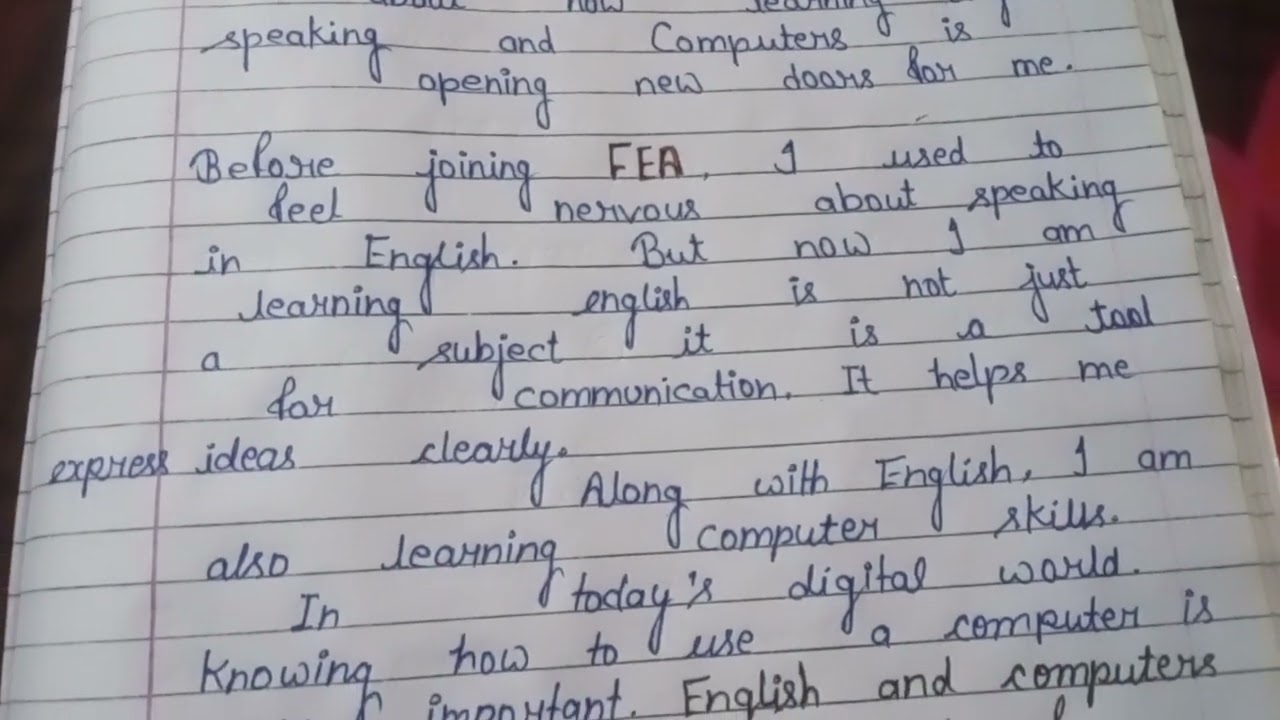 about how learning
speaking and Computers is
opening new doors for me.
Before joining FEA, I used to
feel nervous about speaking
in English. But now I am
learning english is not just
a subject it is a tool
for communication. It helps me
express ideas clearly.
Along with English, I am
also learning computer skills.
In today's digital world.
Knowing how to use a computer is
important. English and computers